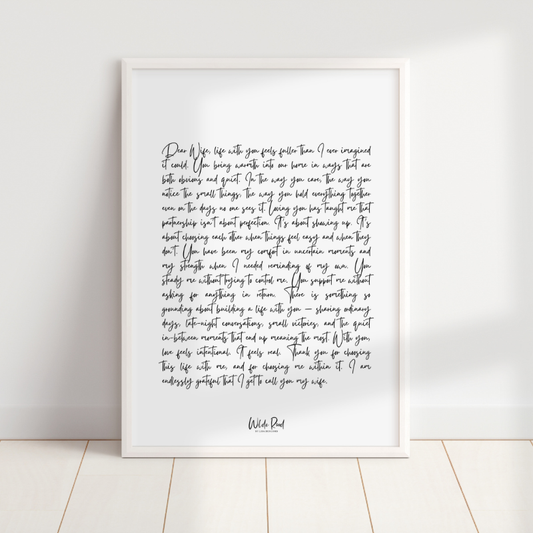 Dear Wife, life with you feels fuller than I ever imagined
it could. You bring warmth into our home in ways that are
both obvious and quiet. In the way you care, the way you
notice the small things, the way you hold everything together
even on the days no one sees it. Loving you has taught me that
partnership isn't about perfection. It's about showing up. It's
about choosing each other when things feel easy and when they
don't. You have been my comfort in uncertain moments and
my strength when I needed reminding of my own. You
steady me without trying to control me, You support me without
asking for anything in return. There is something so
grounding about building a life with you – sharing ordinary
days, late-night conversations, small victories, and the quiet
in-between moments that end up meaning the most. With you,
love feels intentional. It feels real. Thank you for choosing
this life with me, and for choosing me within it. I am
endlessly grateful that I get to call you my wife.